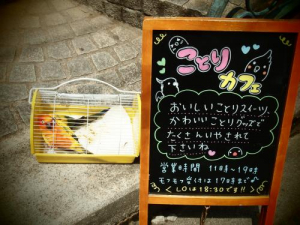 ことり
カフェ
おいしいことりスイーツ、
かわいいことりグッズで
たくさんいやされて
下さいね
営業時間 11時〜19時
モフモフ受付は19時まで
LOは18:30です!!